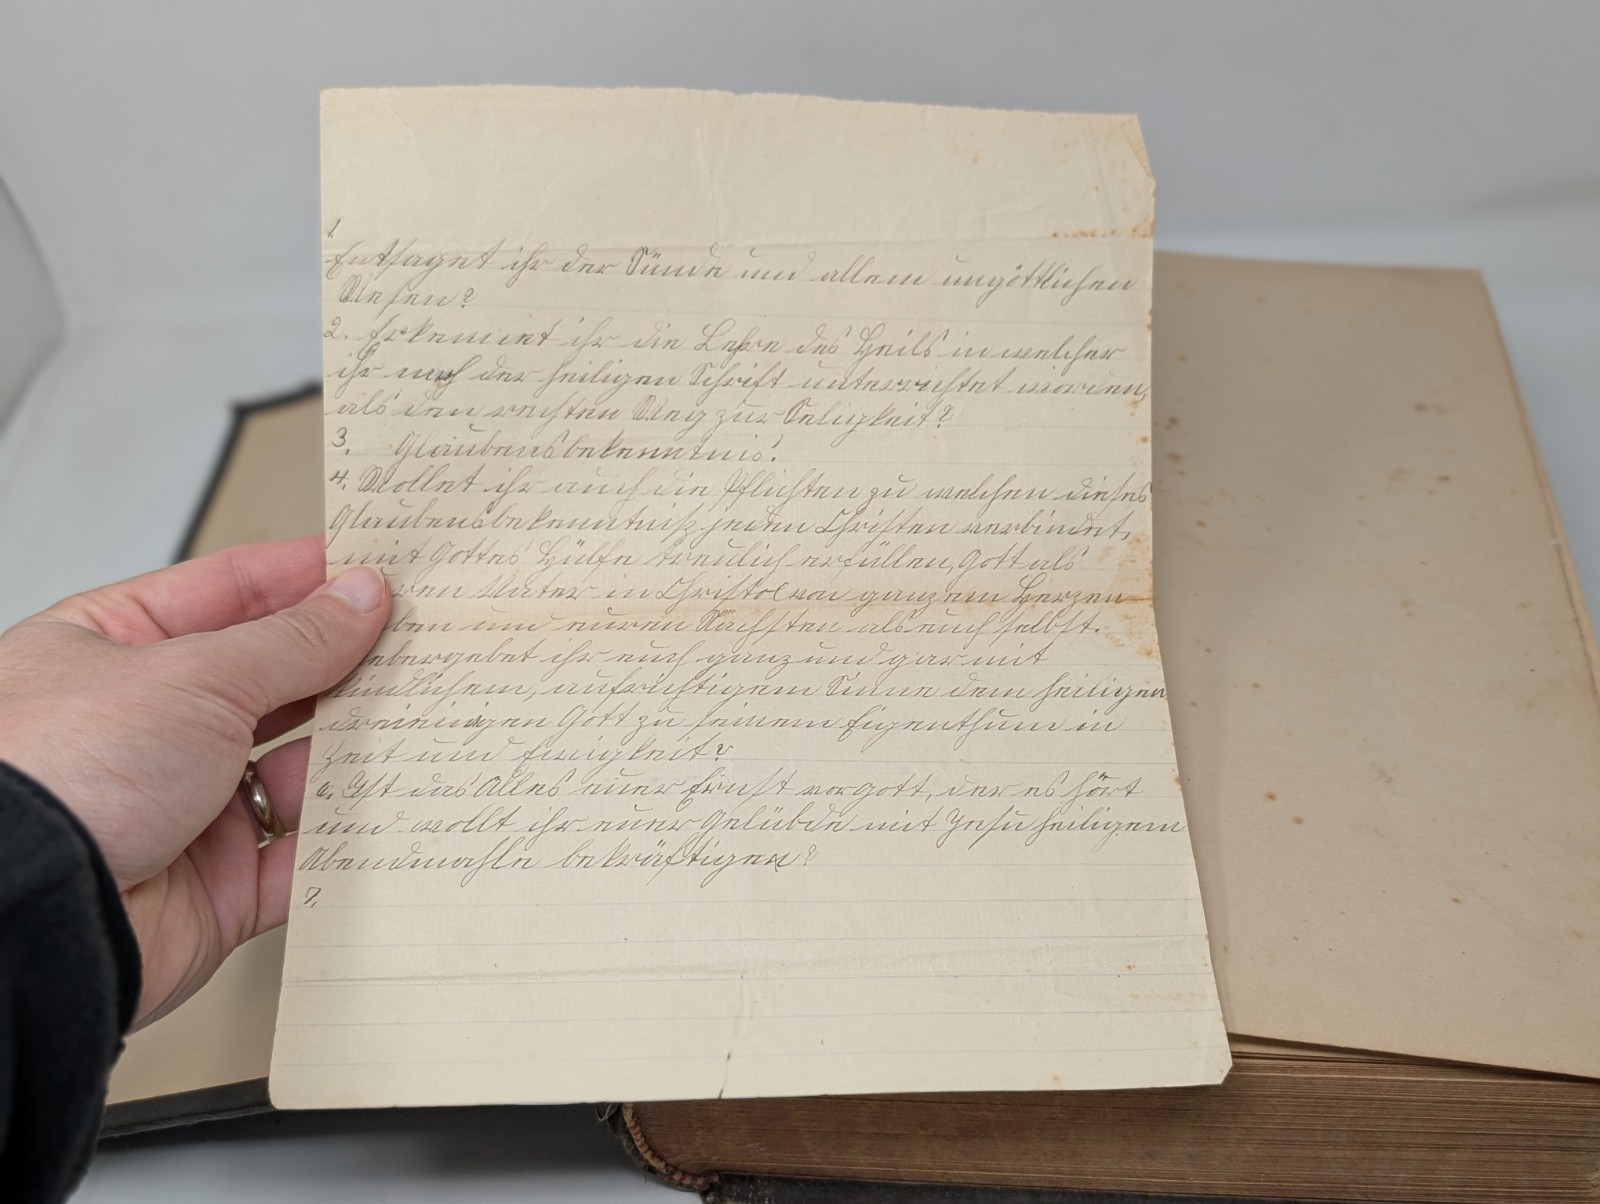 1.
Entsaget ihr der Sünde und allem ungöttlichen
Wesen?
2. Erkennet ihr die Lehre des Heils in welcher
ihr nach der heiligen Schrift unterrichtet worden,
als den rechten Weg zur Seligkeit?
3. Glaubensbekenntnis!
4. Wollet ihr auch die Pflichten zu welchen dieses
Glaubensbekenntniß jeden Christen verbindet,
mit Gottes Hülfe treulich erfüllen, Gott als
ren Vater in Christo von ganzem Herzen
ben und euren Nächsten als euch selbst.
ebergebet ihr euch ganz und gar mit
kindlichem, aufrichtigem Sinne dem heiligen
dreieinigen Gott zu seinem Eigenthum in
Zeit und Ewigkeit?
6. Ist das Alles euer Ernst vor Gott, der es hört
und wollt ihr euer Gelübde mit Jesu heiligem
Abendmahle bekräftigen?
7.